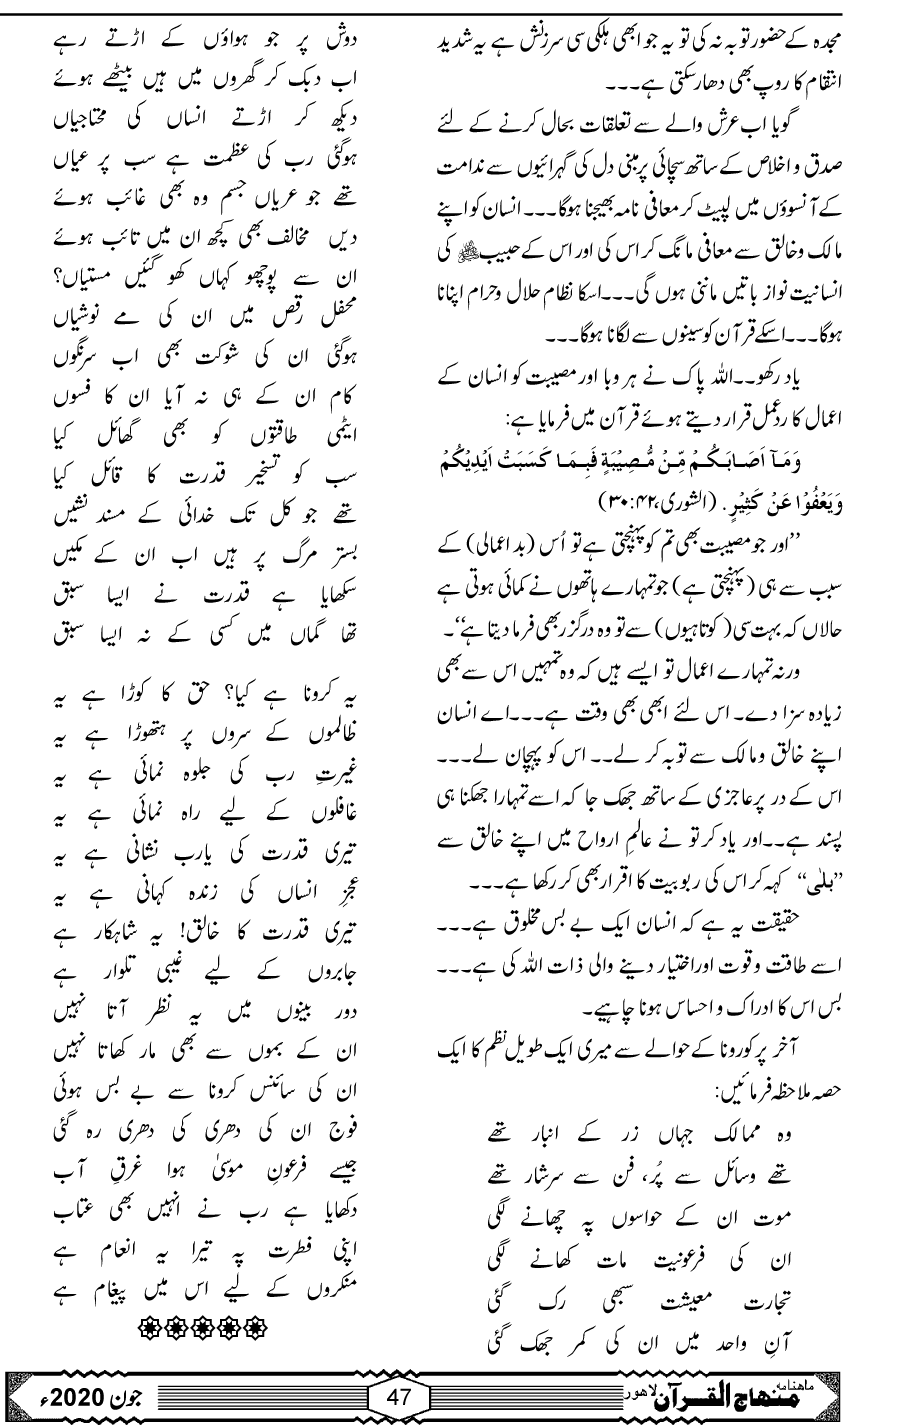 مجدہ کے حضور توبہ نہ کی تو یہ جو ابھی ہلکی سی سرزنش ہے یہ شدید
انتقام کا روپ بھی دھار سکتی ہے۔۔۔
گویا اب عرش والے سے تعلقات بحال کرنے کے لئے
صدق و اخلاص کے ساتھ سچائی پر مبنی دل کی گہرائیوں سے ندامت
کے آنسوؤں میں لپیٹ کر معافی نامہ بھیجنا ہوگا۔۔۔ انسان کو اپنے
مالک وخالق سے معافی مانگ کر اس کی اور اس کے حبیب ﷺ کی
انسانیت نواز باتیں ماننی ہوں گی۔۔۔ اسکا نظام حلال وحرام اپنانا
ہوگا۔۔۔ اسکے قرآن کو سینوں سے لگانا ہوگا۔۔۔
یاد رکھو۔۔ اللہ پاک نے ہر وبا اور مصیبت کو انسان کے
اعمال کا ردِعمل قرار دیتے ہوئے قرآن میں فرمایا ہے:
وَمَآ اَصَابَكُمْ مِّنْ مُّصِيْبَةٍ فَبِمَا كَسَبَتْ اَيْدِيْكُمْ
وَيَعْفُوْا عَنْ كَثِيْرٍ. (الشوری، ۴۲:۳۰)
’’اور جو مصیبت بھی تم کو پہنچتی ہے تو اُس (بد اعمالی) کے
سبب سے ہی (پہنچتی ہے) جو تمہارے ہاتھوں نے کمائی ہوتی ہے
حالاں کہ بہت سی (کوتاہیوں) سے تو وہ درگزر بھی فرما دیتا ہے‘‘۔
ورنہ تمہارے اعمال تو ایسے ہیں کہ وہ تمہیں اس سے بھی
زیادہ سزا دے۔ اس لئے ابھی بھی وقت ہے۔۔۔ اے انسان
اپنے خالق ومالک سے توبہ کر لے۔۔ اس کو پہچان لے۔۔۔
اس کے در پر عاجزی کے ساتھ جھک جا کہ اسے تمہارا جھکنا ہی
پسند ہے۔۔ اور یاد کر تو نے عالمِ ارواح میں اپنے خالق سے
’’بلیٰ‘‘ کہہ کر اس کی ربوبیت کا اقرار بھی کر رکھا ہے۔۔۔
حقیقت یہ ہے کہ انسان ایک بے بس مخلوق ہے۔۔۔
اسے طاقت وقوت اور اختیار دینے والی ذات اللہ کی ہے۔۔۔
بس اس کا ادراک و احساس ہونا چاہیے۔
آخر پر کورونا کے حوالے سے میری ایک طویل نظم کا ایک
حصہ ملاحظہ فرمائیں:
وہ ممالک جہاں زر کے انبار تھے
تھے وسائل سے پُر، فن سے سرشار تھے
موت ان کے حواسوں پہ چھانے لگی
ان کی فرعونیت مات کھانے لگی
تجارت معیشت سبھی رک گئی
آنِ واحد میں ان کی کمر جھک گئی
دوش پر جو ہواؤں کے اڑتے رہے
اب دبک کر گھروں میں ہیں بیٹھے ہوئے
دیکھ کر اڑتے انساں کی محتاجیاں
ہوگئی رب کی عظمت ہے سب پر عیاں
تھے جو عریاں جسم وہ بھی غائب ہوئے
دیں مخالف بھی کچھ ان میں تائب ہوئے
ان سے پوچھو کہاں کھو گئیں مستیاں؟
محفل رقص میں ان کی مے نوشیاں
ہوگئی ان کی شوکت بھی اب سرنگوں
کام ان کے ہی نہ آیا ان کا فسوں
ایٹمی طاقتوں کو بھی گھائل کیا
سب کو تسخیر قدرت کا قائل کیا
تھے جو کل تک خدائی کے مسند نشیں
بستر مرگ پر ہیں اب ان کے مکیں
سکھایا ہے قدرت نے ایسا سبق
تھا گماں میں کسی کے نہ ایسا سبق
یہ کرونا ہے کیا؟ حق کا کوڑا ہے یہ
ظالموں کے سروں پر ہتھوڑا ہے یہ
غیرتِ رب کی جلوہ نمائی ہے یہ
غافلوں کے لیے راہ نمائی ہے یہ
تیری قدرت کی یارب نشانی ہے یہ
عجزِ انساں کی زندہ کہانی ہے یہ
تیری قدرت کا خالق! یہ شاہکار ہے
جابروں کے لیے غیبی تلوار ہے
دور بینوں میں یہ نظر آتا نہیں
ان کے بموں سے بھی مار کھاتا نہیں
ان کی سائنس کرونا سے بے بس ہوئی
فوج ان کی دھری کی دھری رہ گئی
جیسے فرعونِ موسیٰ ہوا غرقِ آب
دکھایا ہے رب نے انہیں بھی عتاب
اپنی فطرت پہ تیرا یہ انعام ہے
منکروں کے لیے اس میں پیغام ہے
ماھنامہ منہاج القرآن لاھور
47
جون 2020ء